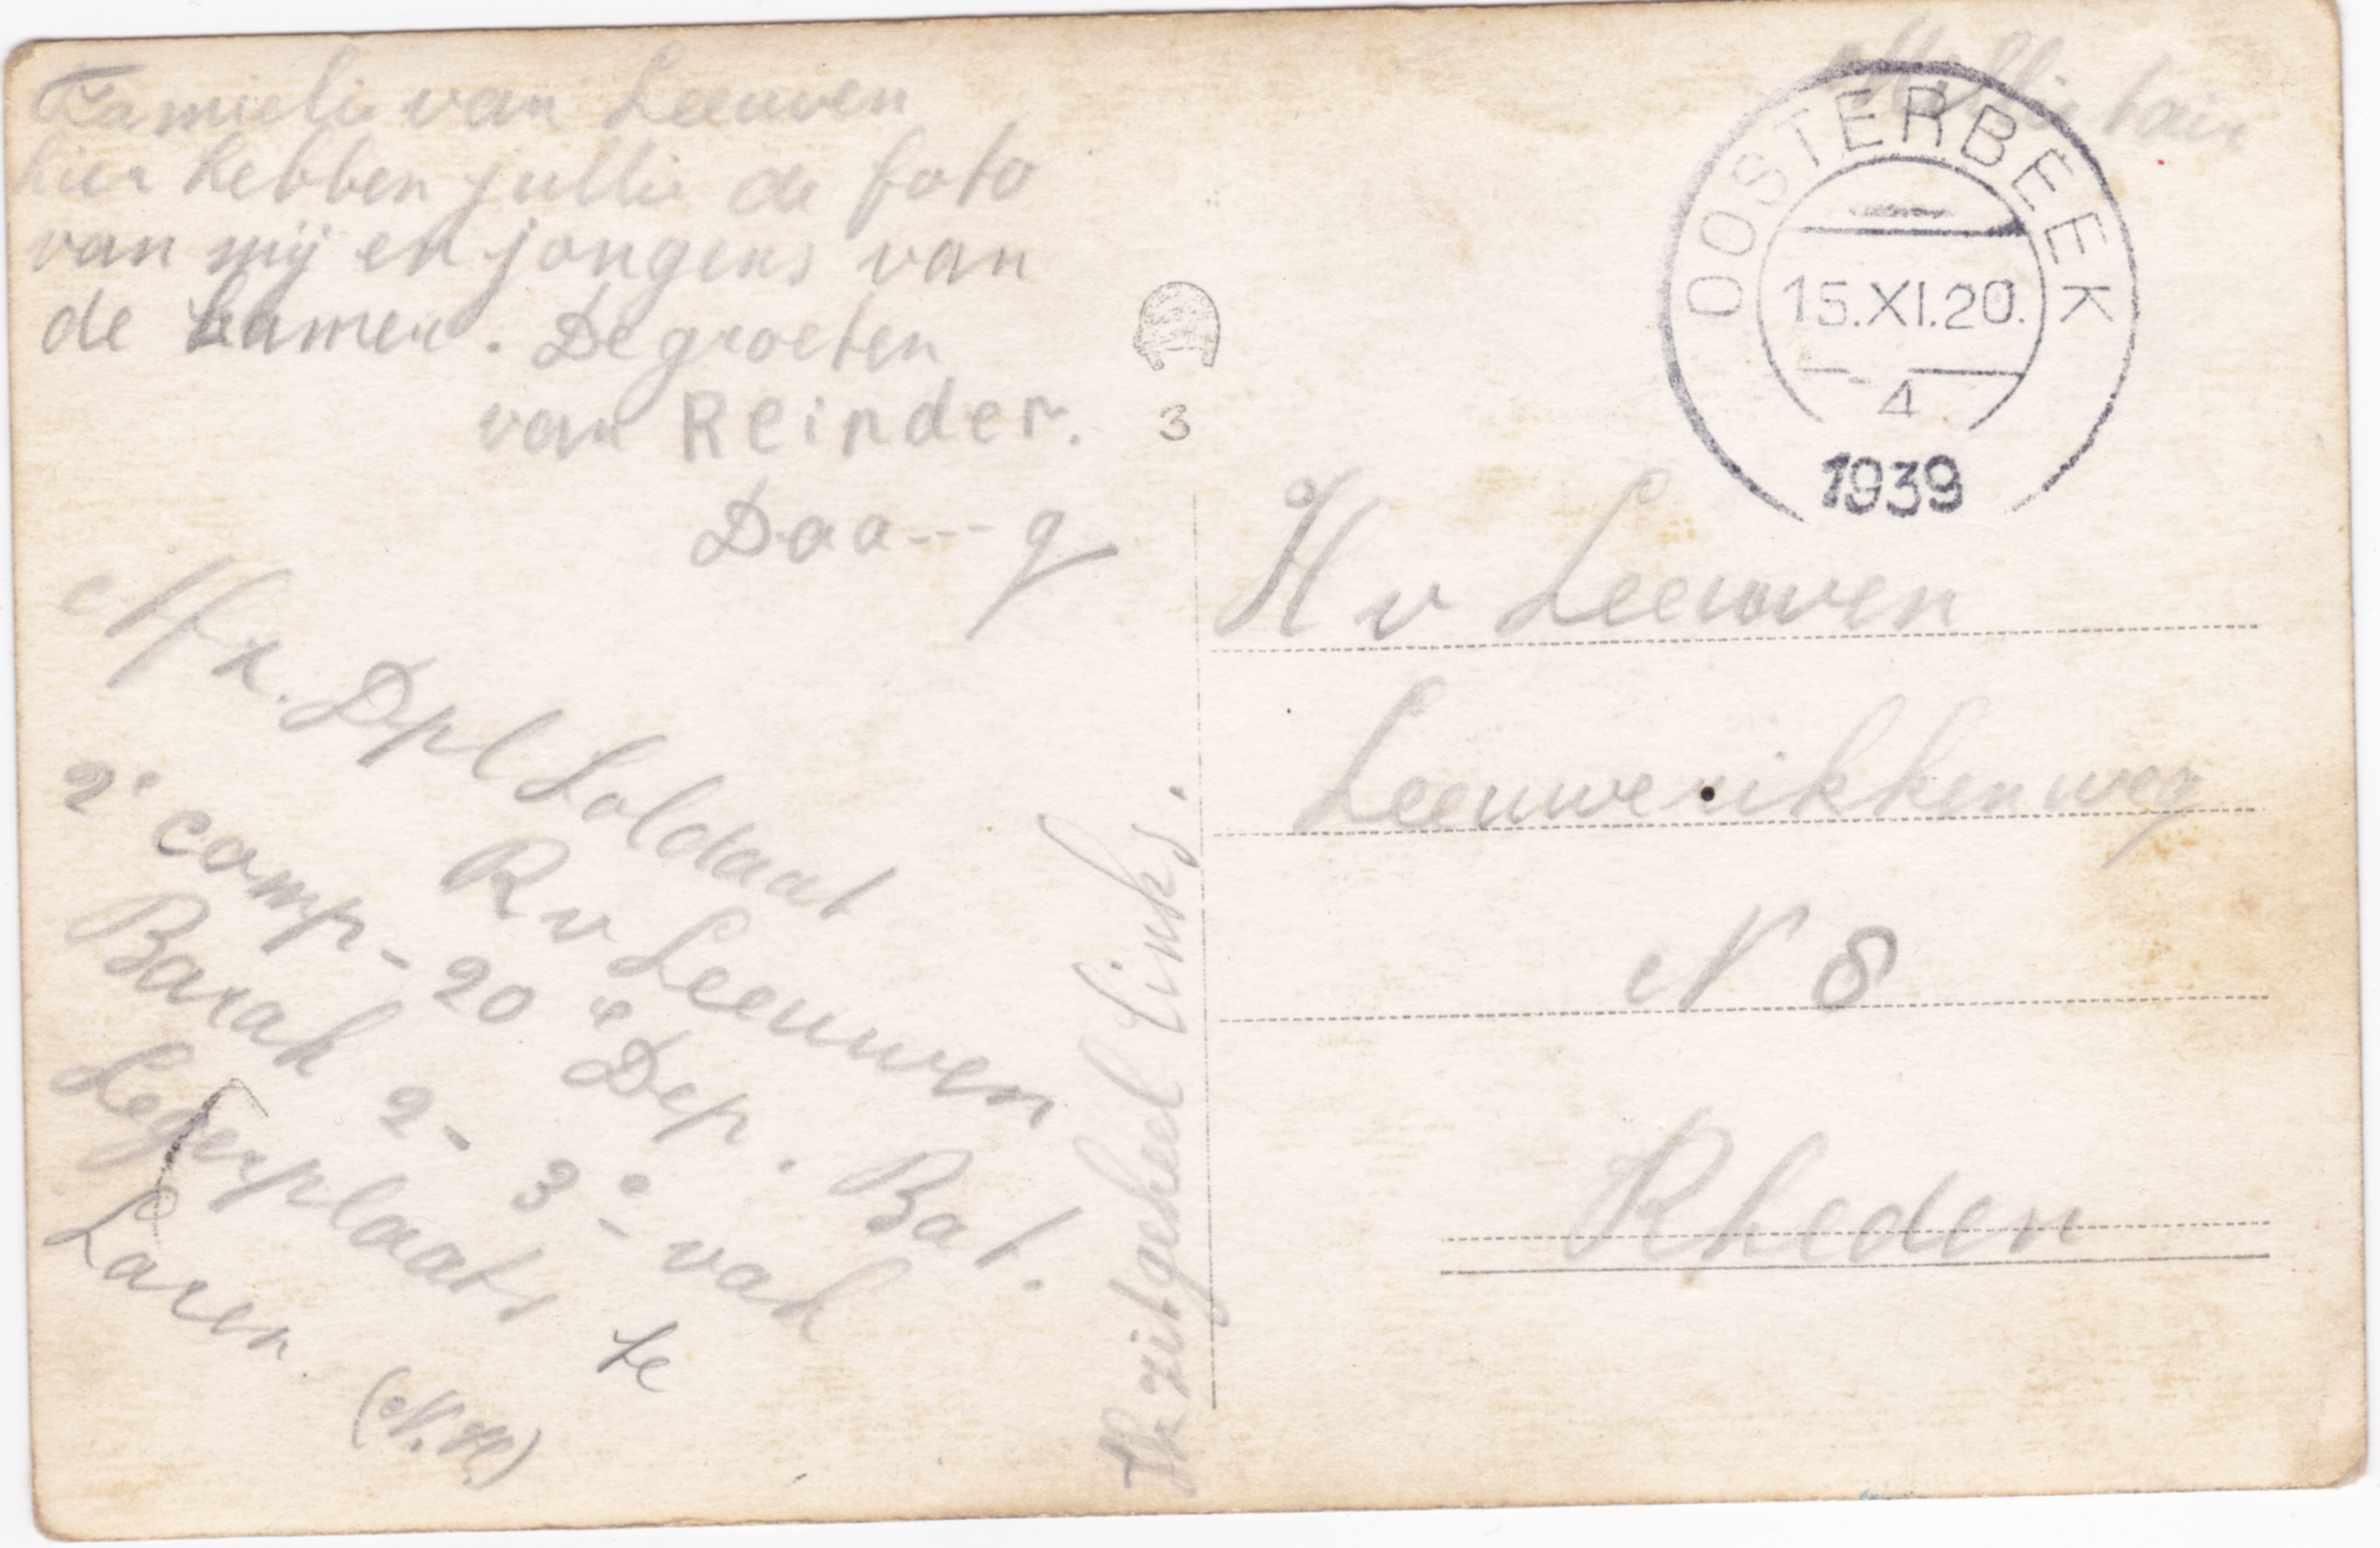 Famielie van Leeuwen
hier hebben jullie de foto
van mij en jongens van
de kamer. De groeten
van Reinder.
Daa---g
Afz. Dpl Soldaat
R v Leeuwen
2e comp - 20e Dep. Bat.
Barak 2 - 3e vak
Legerplaats te
Laren (N.H.)
Ik zit geheel links.
3
Millitair
OOSTERBEEK
15.XI.20.
4
1939
H v Leeuwen
Leeuwerikkenweg
N 8
Rheden